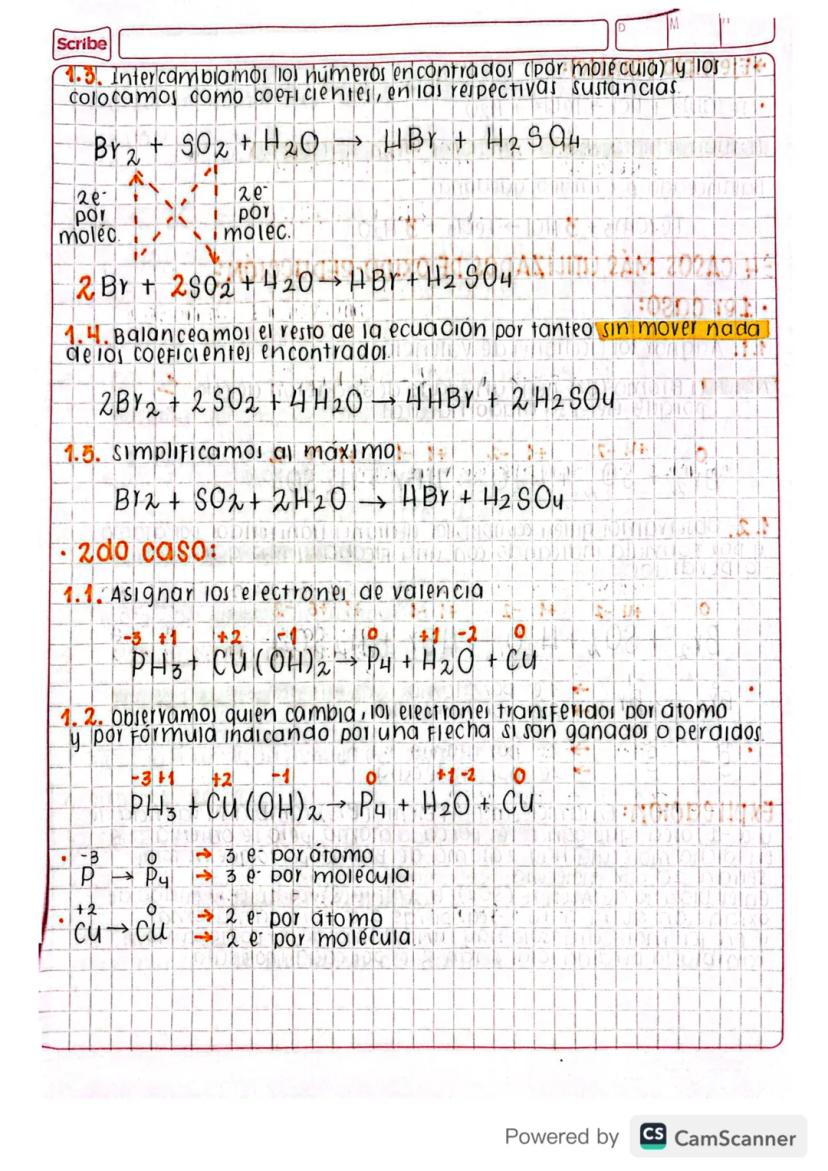 Scribe
D M
1.3. Intercambiamos los números encontrados (por molécula) y los
colocamos como coeficientes, en las respectivas sustancias.
Br2 + SO2 + H2O → HBr + H2SO4
2e- 2e-
por por
moléc. moléc.
2Br + 2SO2 + H2O → HBr + H2SO4
1.4. Balanceamos el resto de la ecuación por tanteo sin mover nada
de los coeficientes encontrados.
2Br2 + 2SO2 + 4H2O → 4HBr + 2H2SO4
1.5. Simplificamos al máximo:
Br2 + SO2 + 2H2O → HBr + H2SO4
· 2do caso:
1.1. Asignar los electrones de valencia
-3 +1 +2 -1 0 +1 -2 0
PH3 + Cu(OH)2 → P4 + H2O + Cu
1.2. Observamos quien cambia, los electrones transferidos por átomo
y por fórmula indicando por una flecha si son ganados o perdidos.
-3 +1 +2 -1 0 +1 -2 0
PH3 + Cu(OH)2 → P4 + H2O + Cu
· -3 0 → 3 e- por átomo
P → P4 → 3 e- por molécula
· +2 0 → 2 e- por átomo
Cu → Cu → 2 e- por molécula.
Powered by CS CamScanner